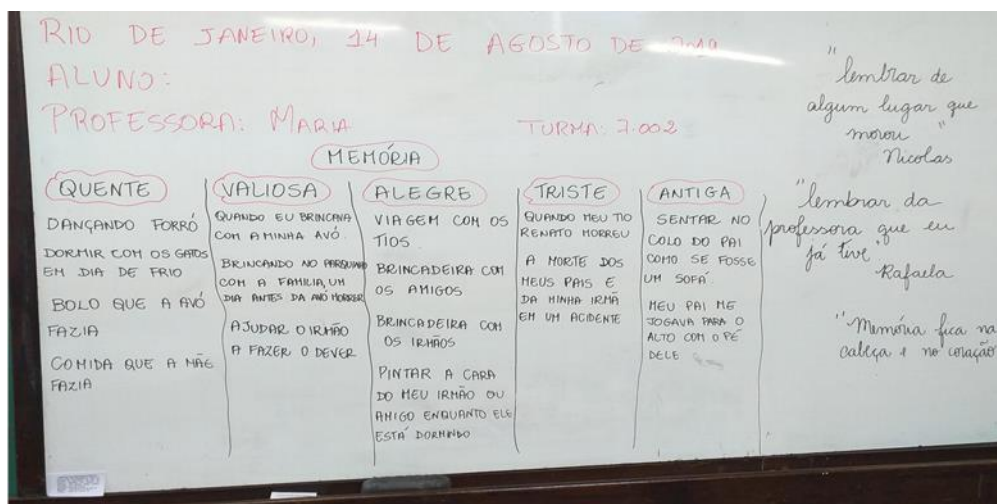 RIO DE JANEIRO, 14 DE AGOSTO DE 2019
ALUNO:
PROFESSORA: MARIA
TURMA: 7.002
MEMÓRIA
QUENTE
DANÇANDO FORRÓ
DORMIR COM OS GATOS
EM DIA DE FRIO
BOLO QUE A AVÓ
FAZIA
COMIDA QUE A MÃE
FAZIA
VALIOSA
QUANDO EU BRINCAVA
COM A MINHA AVÓ.
BRINCANDO NO
COM A FAMILIA, UM
DIA ANTES DA AVÓ MORRER
AJUDAR O IRMÃO
A FAZER O DEVER
ALEGRE
VIAGEM COM OS
TIOS.
BRINCADEIRA COM
OS AMIGOS
BRINCADEIRA COM
OS IRMÃOS
PINTAR A CARA
DO MEU IRMÃO OU
AMIGO ENQUANTO ELE
ESTÁ DORMINDO
TRISTE
QUANDO MEU TIO
RENATO MORREU
A MORTE DOS
MEUS PAIS E
DA MINHA IRMÃ
EM UM ACIDENTE
ANTIGA
SENTAR NO
COLO DO PAI
COMO SE FOSSE
UM SOFÁ.
MEU PAI ME
JOGAVA PARA O
ALTO COM O PÉ
DELE
"lembrar de
algum lugar que
morou"
Nicolas
"lembrar da
professora que eu
já tive"
Rafaela
"Memória fica na
cabeça e no coração